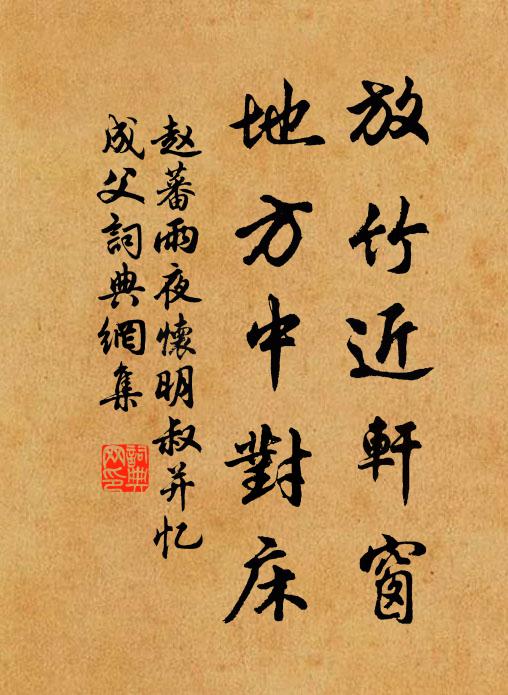 放竹近軒窗
地方中對床
赵蕃雨夜懷明叔并忆
成父詞典網集
詞典网印